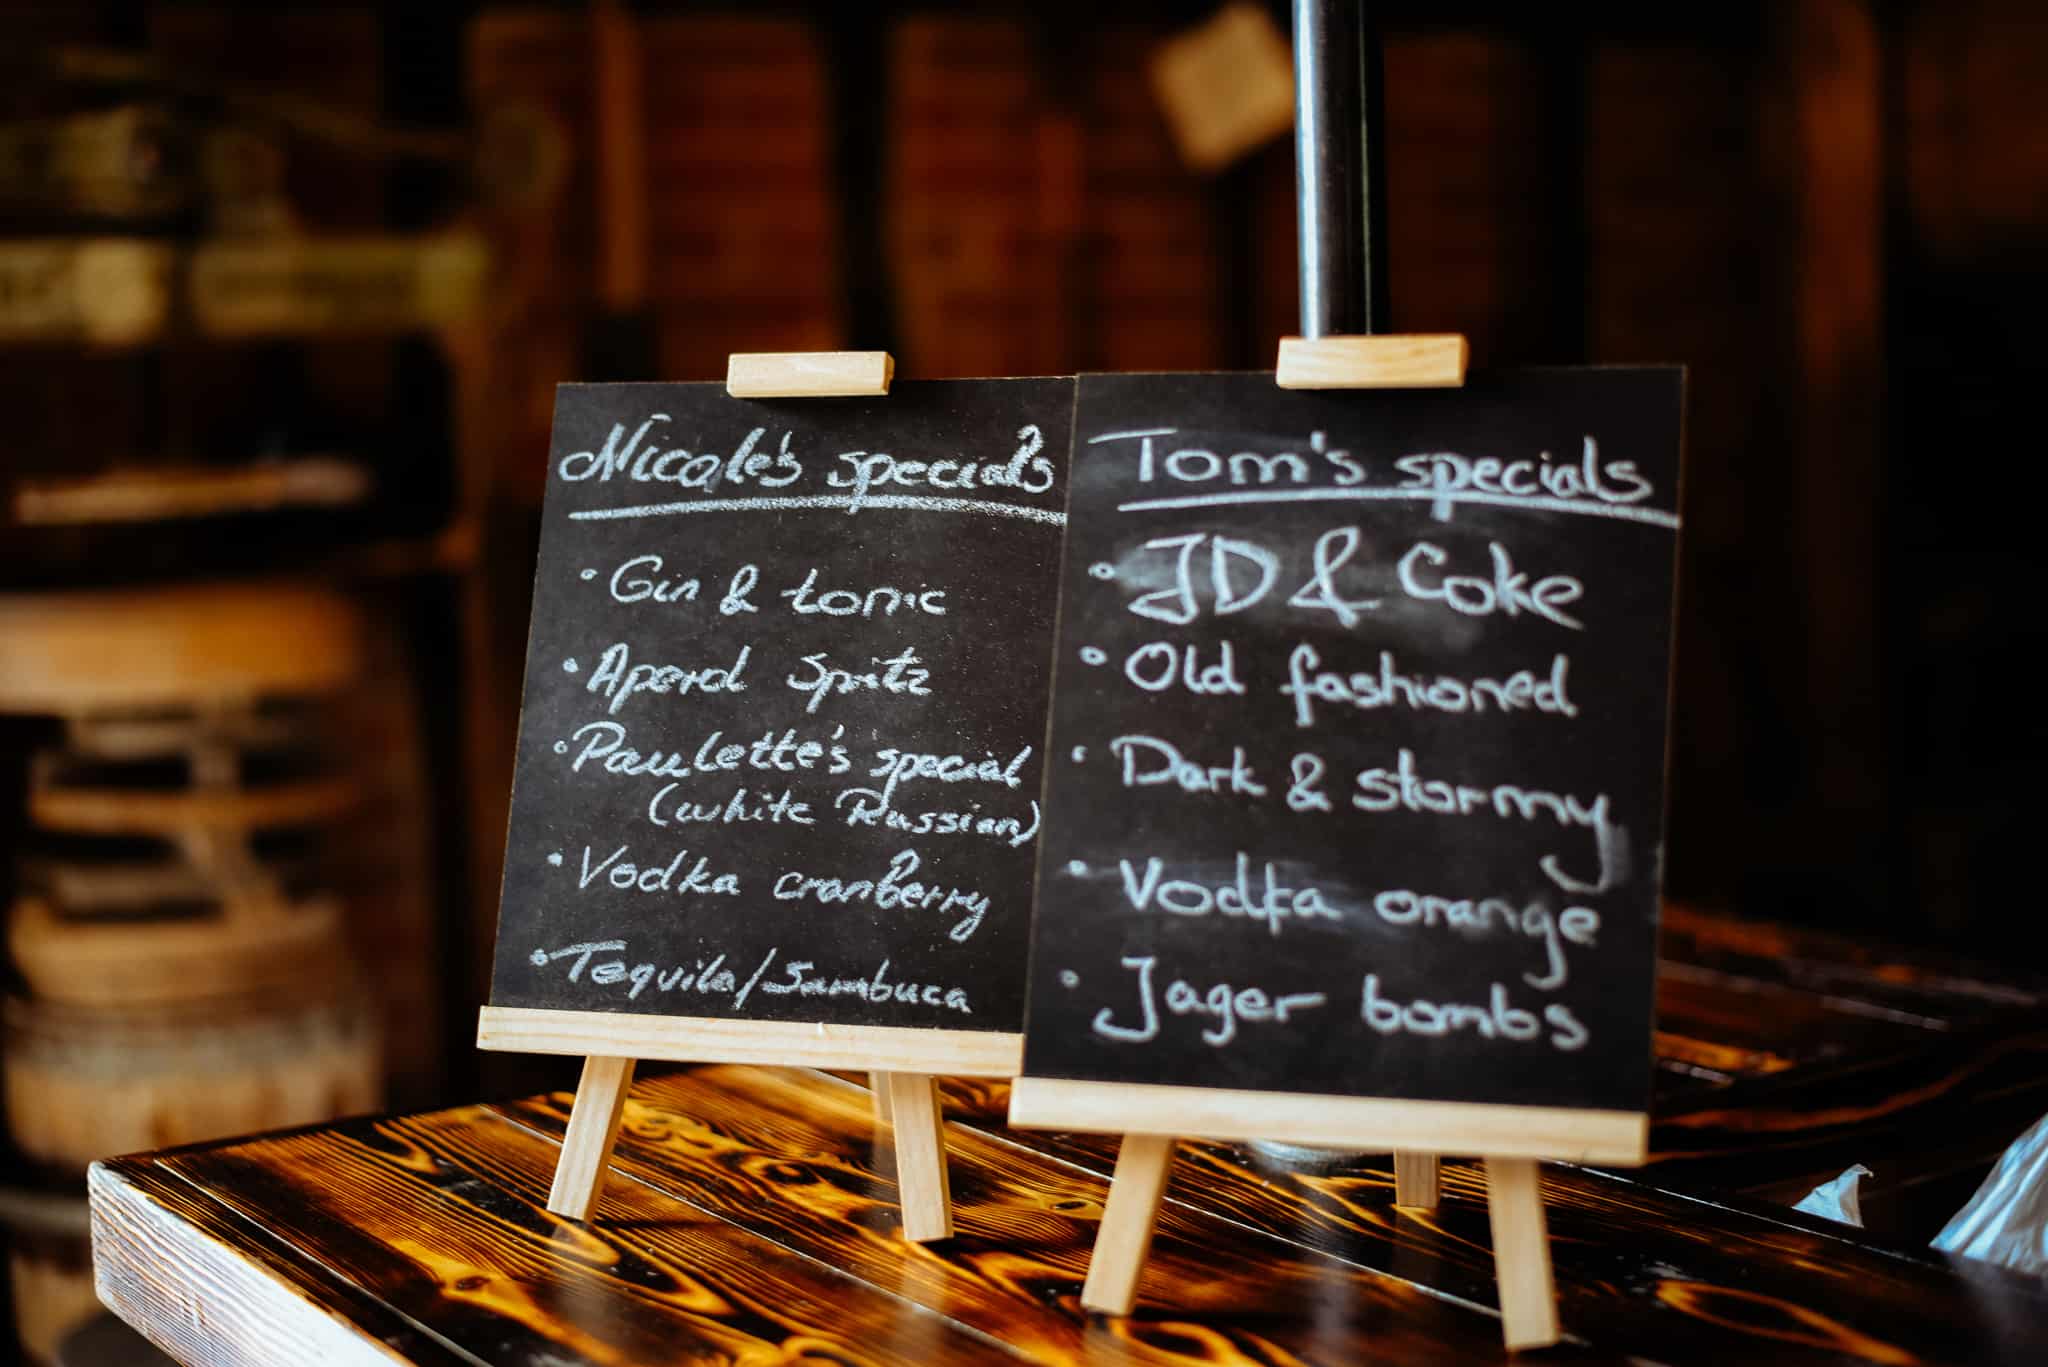 Nicole's specials
• Gin & tonic
• Aperol Spritz
• Paulette's special
(white Russian)
• Vodka cranberry
• Tequila/Sambuca
Tom's specials
• JD & Coke
• Old fashioned
• Dark & stormy
• Vodka orange
• Jager bombs